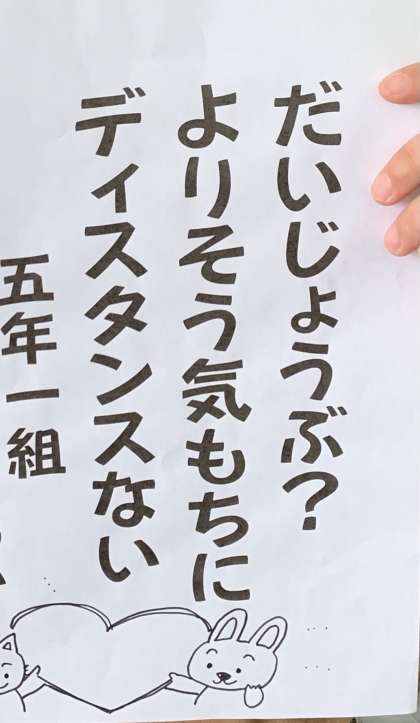 だいじょうぶ?
よりそう気もちに
ディスタンスない
五年一組